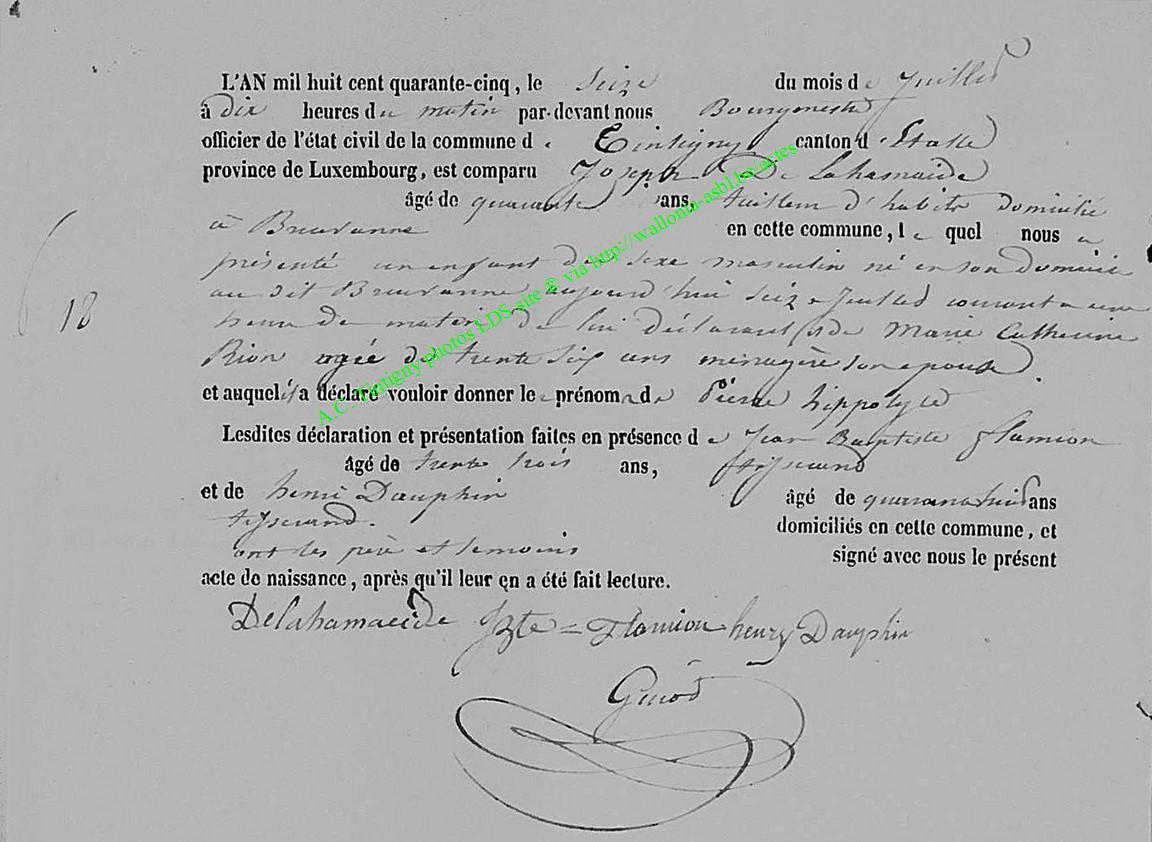 L'AN mil huit cent quarante-cinq, le seize du mois de Juillet
à dix heures du matin par-devant nous Bourgmestre
officier de l'état civil de la commune de Tintigny canton d'Etalle
province de Luxembourg, est comparu Joseph De Lahamaide
âgé de quarante ans, tailleur d'habits domicilié
à Breuvanne en cette commune, lequel nous a
présenté un enfant du sexe masculin né en son domicile
au dit Breuvanne aujourd'hui seize Juillet courant a une
heure du matin de lui déclarant et de Marie Catherine
Rion agée de trente six ans ménagère son epouse
18
et auquel il a déclaré vouloir donner le prénom de Pierre hippolyte
Lesdites déclaration et présentation faites en présence de Jean Baptiste flamion
âgé de trente trois ans, tisserand
et de henri Dauphin âgé de quarante huit ans
tisserand. domiciliés en cette commune, et
ont les père et temoins signé avec nous le présent
acte de naissance, après qu'il leur en a été fait lecture.
Delahamaeide Jbte = Flamion henry Dauphin
A.C. Tintigny photos LDS, site ® via http://wallonia-asbl.be/actes